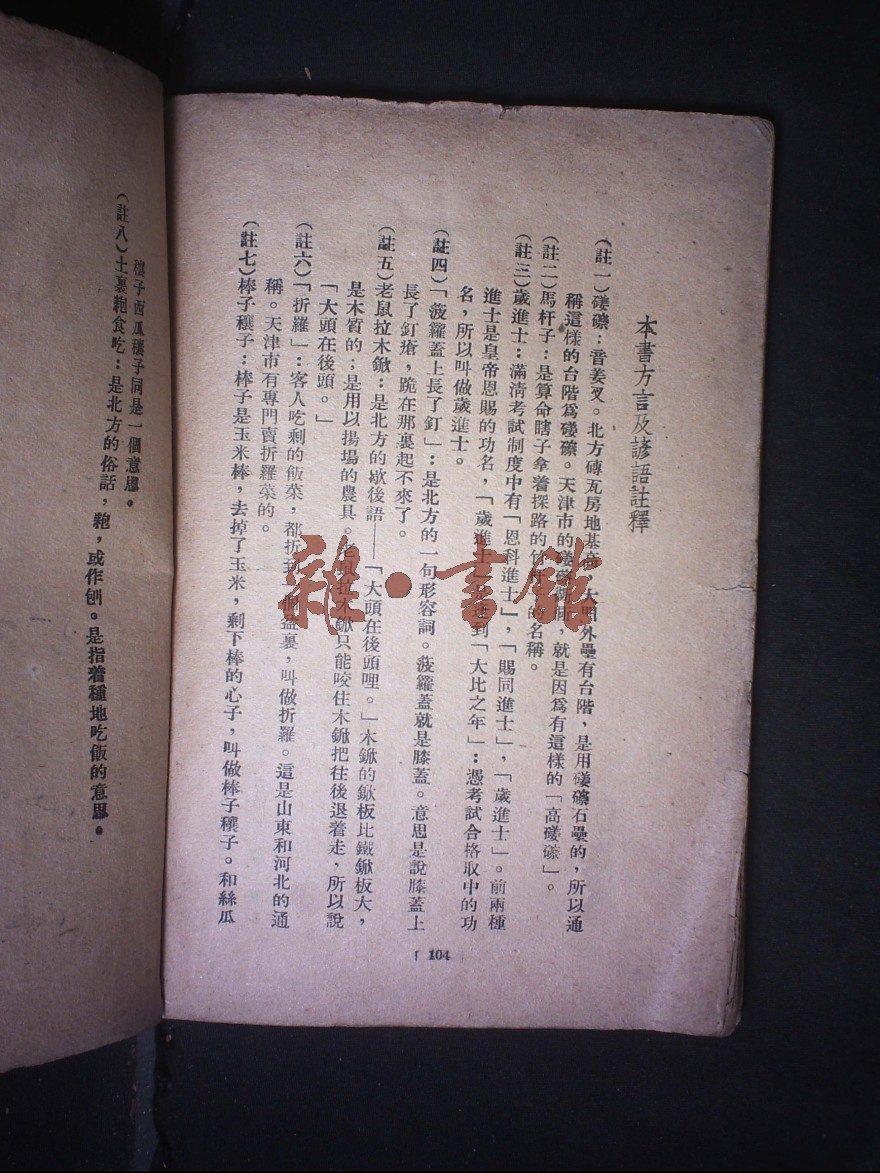 本書方言及諺語註釋
(註一)磋礤：音姜叉。北方磚瓦房地基高，大門外壘有台階，是用磋礤石壘的，所以通
稱這樣的台階爲磋礤。天津市的磋礤衚衕，就是因爲有這樣的「高磋礤」。
(註二)馬杆子：是算命瞎子拿着探路的竹竿的名稱。
(註三)歲進士：滿淸考試制度中有「恩科進士」，「賜同進士」，「歲進士」。前兩種
進士是皇帝恩賜的功名，「歲進士」是達到「大比之年」：憑考試合格取中的功
名，所以叫做歲進士。
(註四)「菠蘿蓋上長了釘」：是北方的一句形容詞。菠蘿蓋就是膝蓋。意思是說膝蓋上
長了釘瘡，跪在那裏起不來了。
(註五)老鼠拉木鍁：是北方的歇後語——「大頭在後頭哩。」木鍁的鍁板比鐵鍁板大，
是木質的；是用以揚場的農具。老鼠拉木鍁只能咬住木鍁把往後退着走，所以說
「大頭在後頭。」
(註六)「折羅」：客人吃剩的飯菜，都折到一個盆裏，叫做折羅。這是山東和河北的通
稱。天津市有專門賣折羅菜的。
(註七)棒子穰子：棒子是玉米棒，去掉了玉米，剩下棒的心子，叫做棒子穰子。和絲瓜
104
雜·書館
穰子西瓜穰子同是一個意思。
(註八)土裏鞄食吃：是北方的俗話，鞄，或作刨。是指着種地吃飯的意思。